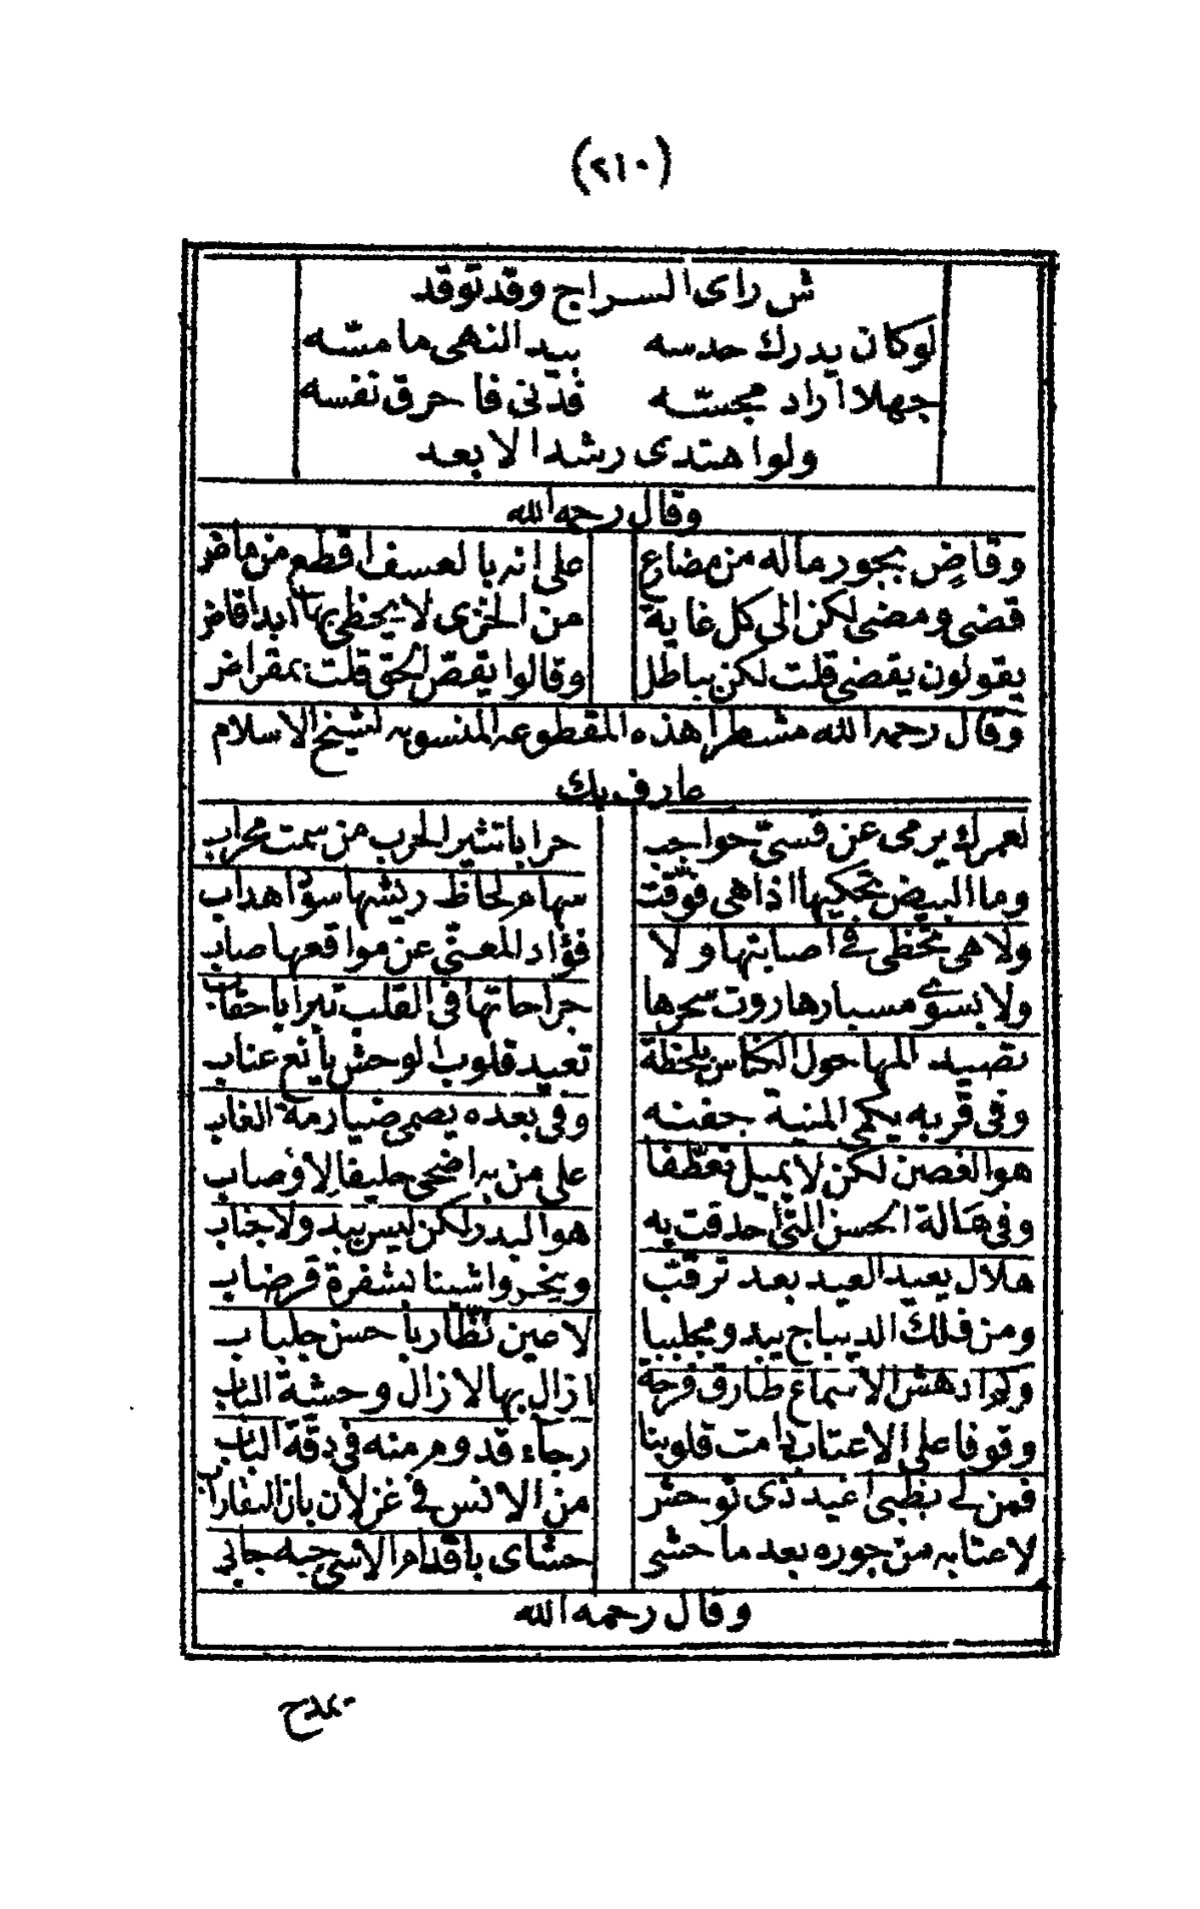 (٢١٠)
ش رأى السراج وقد توقد
لوكان يدرك حدسه بيد النهى ما مسّه
جهلا اراد مجسّه فدنى فاحرق نفسه
ولو اهتدى رشدا لا بعد
وقال رحمه الله
وقاضٍ بجور ماله من مضاع على انه بالعسف اقطع من ماض
قضى ومضى لكن الى كل غاية من الخزى لا يحظى بها ابدا قاض
يقولون يقضى قلت لكن بباطل وقالوا يقصّ الحق قلت بمقراض
وقال رحمه الله مشطرا هذه المقطوعه المنسوبه لشيخ الاسلام
عارف بك
لعمرك يرمى عن قسىّ حواجب حرابا تثير الحرب من سمت محراب
وما البيض تحكيها اذا هى فوقت سهام لحاظ ريشها سود اهداب
ولا هى تخطى فى اصابتها ولا فؤاد المعنّى عن مواقعها صاب
ولا بسوى مسبار هاروت سحرها جراحاتها فى القلب تبرا باحقاب
تصيد المها حول الكناس بلحظة تعيد قلوب الوحش بايع عناب
وفى قربه يحكى المنية جفنه وفى بعده يصمى ضيارمة الغاب
هو الغصن لكن لا يميل تعطفا على من به اضحى حليفا لاوصاب
وفى هالة الحسن التى احدقت به هو البدر لكن ليس يبدو لاجناب
هلال يعيد العيد بعد ترقب وينحر واشينا بشفرة قرضاب
ومن فلك الديباج يبدو مجلببا لاعين نظّار با حسن جلباب
وكم ادهش الاسماع طارق فرحه ازال بها لازال وحشة الباب
وقوفا على الاعتاب دامت قلوبنا رجاء قدوم منه فى دقة الباب
فمن لى بظبى اغيد ذى توحش من الانس فى غزلان بان النقا رابى
لاعتابه من جوره بعد ما حشى حشاى باقدام الاسى جبه جابى
وقال رحمه الله
بمدح